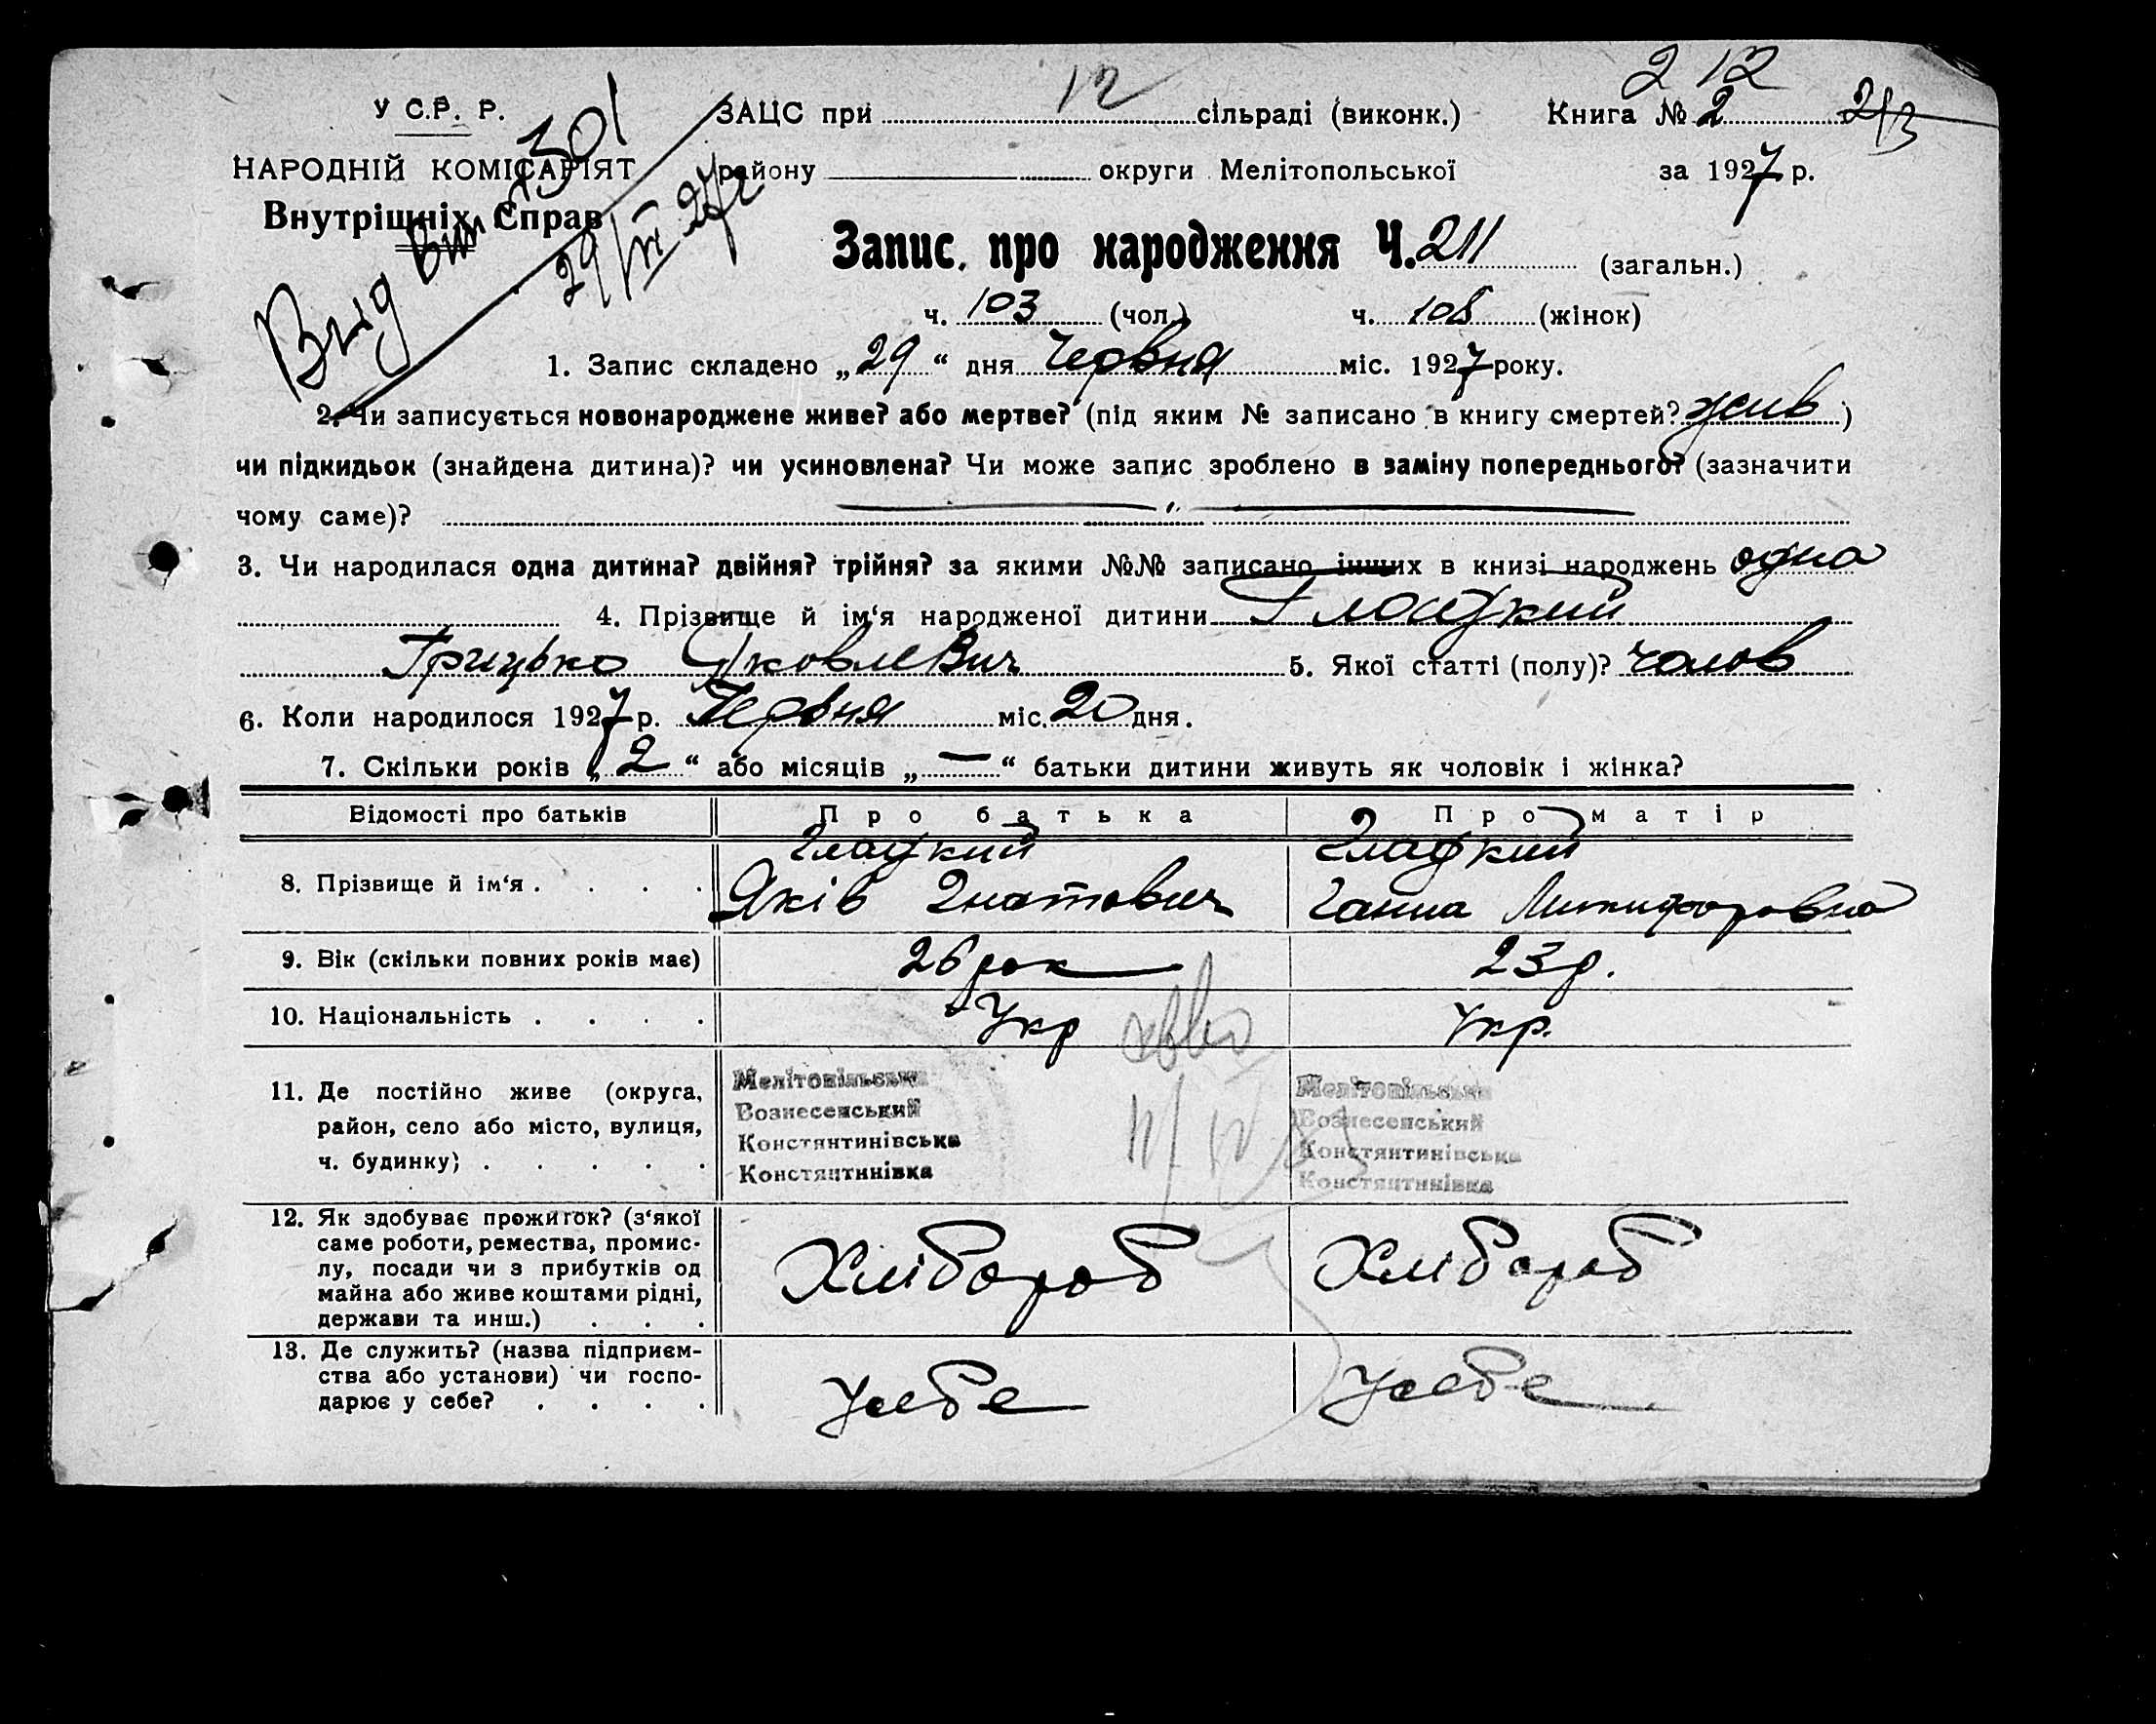 212
У С.Р. Р. ЗАЦС при 12 сільраді (виконк.) Книга № 2 213
НАРОДНІЙ КОМІСАРІЯТ району округи Мелітопольської за 1927 р.
Внутрішніх Справ
Вид Вип 1301
29/VI 27р
Запис про народження Ч. 211 (загальн.)
ч. 103 (чол.) ч. 108 (жінок)
1. Запис складено „29“ дня Червня міс. 1927 року.
2. Чи записується новонароджене живе? або мертве? (під яким № записано в книгу смертей? жив)
чи підкидьок (знайдена дитина)? чи усиновлена? Чи може запис зроблено в заміну попереднього? (зазначити
чому саме)? — „ —
3. Чи народилася одна дитина? двійня? трійня? за якими №№ записано інших в книзі народжень одна
4. Прізвище й ім‘я народженої дитини Гладкий
Грицько Яковлевич 5. Якої статті (полу)? чолов
6. Коли народилося 1927 р. Червня міс. 20 дня.
7. Скільки років „2“ або місяців „—“ батьки дитини живуть як чоловік і жінка?
Відомості про батьків Про батька Про матір
8. Прізвище й ім‘я . . . . Гладкий Яків Гнатович Гладкий Ганна Микифоровна
9. Вік (скільки повних років має) 26 рок 23 р.
10. Національність . . . . Укр Укр.
11. Де постійно живе (округа, Мелітопільська Мелітопільська
район, село або місто, вулиця, Вознесенський Вознесенський
ч. будинку) . . . . . Константинівська Константинівська
Константинівка Константинівка
12. Як здобуває прожиток? (з‘якої
саме роботи, ремества, промис-
лу, посади чи з прибутків од Хлібороб Хлібороб
майна або живе коштами рідні,
держави та инш.) . . .
13. Де служить? (назва підприєм-
ства або установи) чи госпо- Усебе Усебе
дарює у себе? . . . .